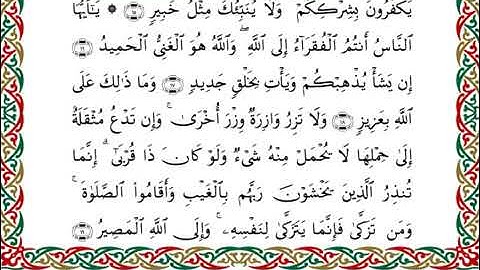 يَكْفُرُونَ بِشِرْكِكُمْ ۚ وَلَا يُنَبِّئُكَ مِثْلُ خَبِيرٍ ۞ يَـٰٓأَيُّهَا
ٱلنَّاسُ أَنتُمُ ٱلْفُقَرَآءُ إِلَى ٱللَّهِ ۖ وَٱللَّهُ هُوَ ٱلْغَنِىُّ ٱلْحَمِيدُ
إِن يَشَأْ يُذْهِبْكُمْ وَيَأْتِ بِخَلْقٍ جَدِيدٍ وَمَا ذَٰلِكَ عَلَى
ٱللَّهِ بِعَزِيزٍ وَلَا تَزِرُ وَازِرَةٌ وِزْرَ أُخْرَىٰ ۚ وَإِن تَدْعُ مُثْقَلَةٌ
إِلَىٰ حِمْلِهَا لَا يُحْمَلْ مِنْهُ شَىْءٌ وَلَوْ كَانَ ذَا قُرْبَىٰٓ ۗ إِنَّمَا
تُنذِرُ ٱلَّذِينَ يَخْشَوْنَ رَبَّهُم بِٱلْغَيْبِ وَأَقَامُوا۟ ٱلصَّلَوٰةَ ۚ
وَمَن تَزَكَّىٰ فَإِنَّمَا يَتَزَكَّىٰ لِنَفْسِهِۦ ۚ وَإِلَى ٱللَّهِ ٱلْمَصِيرُ